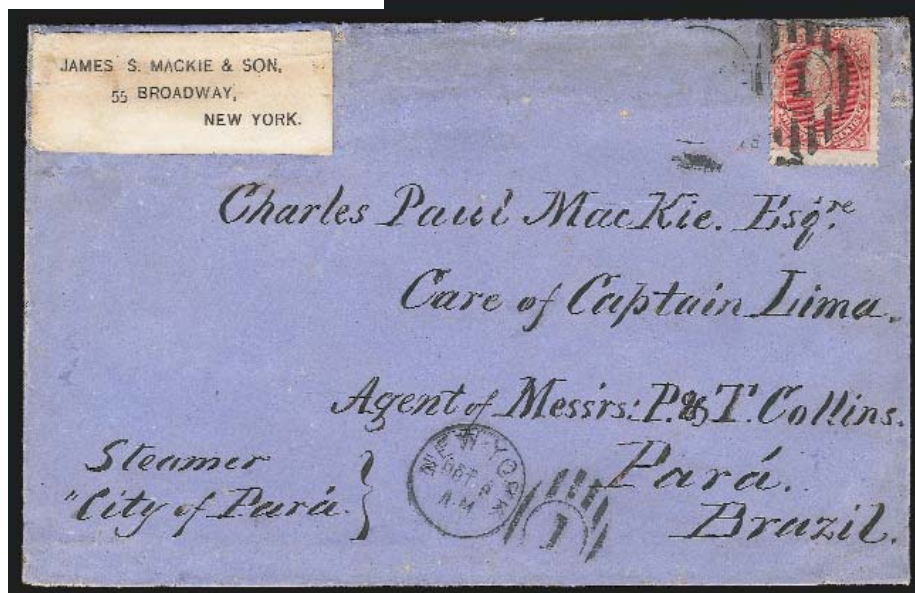 JAMES S. MACKIE & SON,
55 BROADWAY,
NEW YORK.
Charles Paul MacKie. Esqre.
Care of Captain Lima.
Agent of Messrs: P. & T. Collins.
Steamer
"City of Pará.
Pará.
Brazil.
NEW-YORK
OCT 8
A.M
1
1